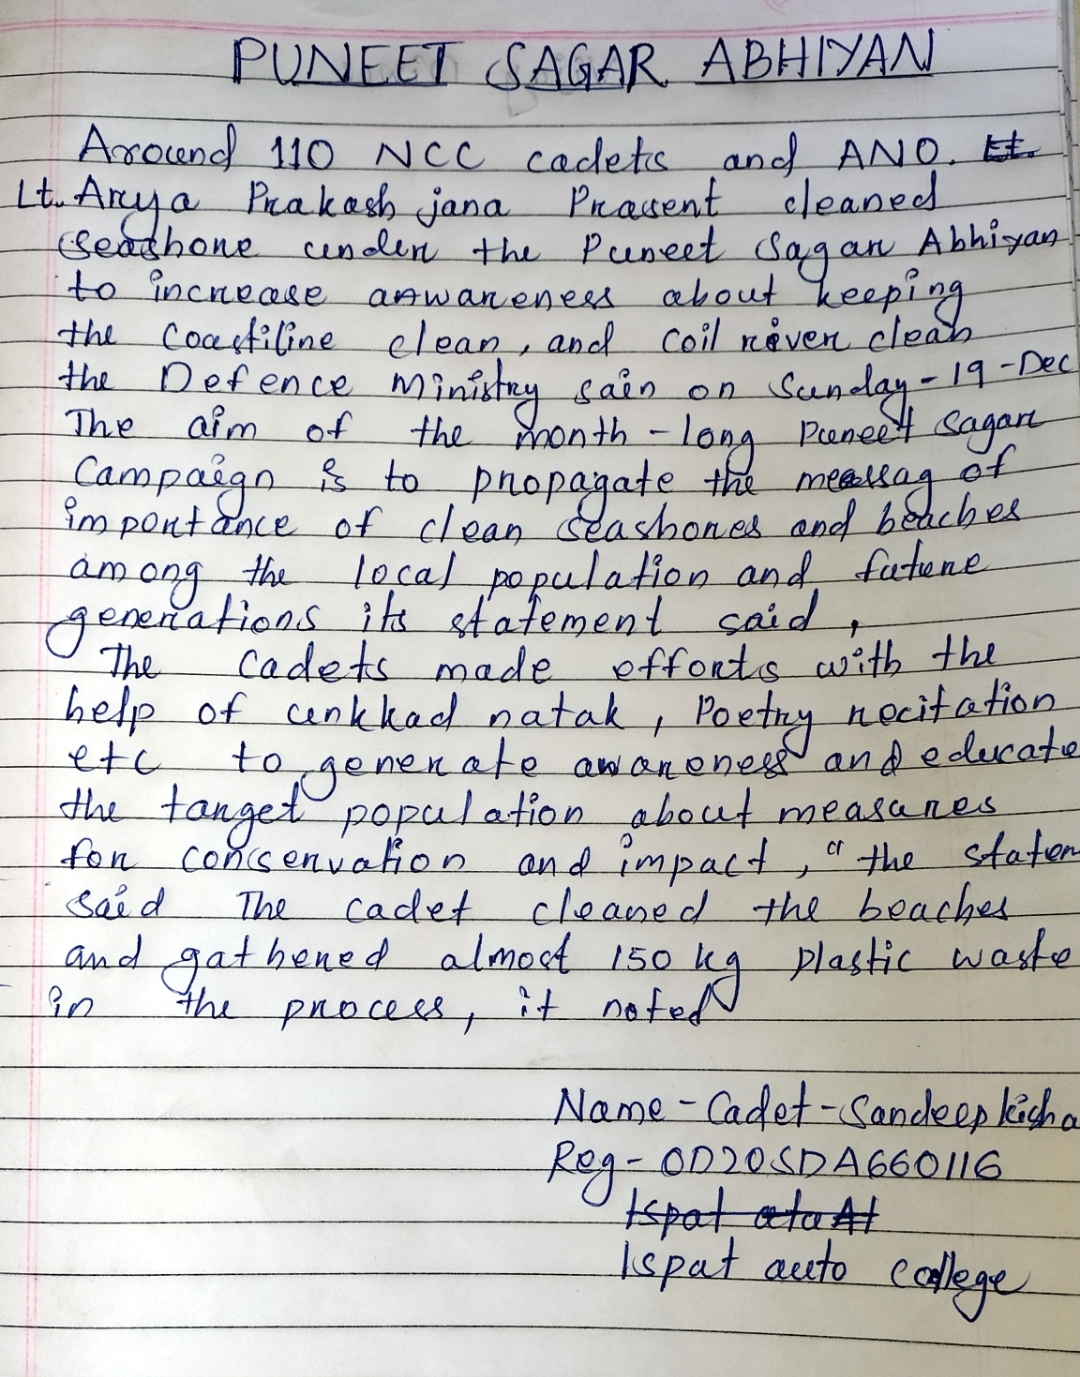 PUNEET SAGAR ABHIYAN
Around 110 NCC cadets and ANO. Lt.
Lt. Arya Prakash jana Prasent cleaned
Seashore under the Puneet Sagar Abhiyan
to increase anwareness about keeping
the Coastiline clean, and Coil river clean
the Defence Ministry sain on Sunday-19-Dec
The aim of the month-long Puneet Sagar
Campaign is to propagate the meassag of
importance of clean seashores and beaches
among the local population and future
generations its statement said,
The Cadets made efforts with the
help of unkkad natak, Poetry recitation
etc to generate awareness and educate
the target population about measures
for conservation and impact, " the statem
Said The cadet cleaned the beaches
and gathered almost 150 kg plastic waste
in the process, it noted
Name-Cadet-Sandeep kisha
Reg-OD20SDA660116
Ispat ata At
Ispat auto college